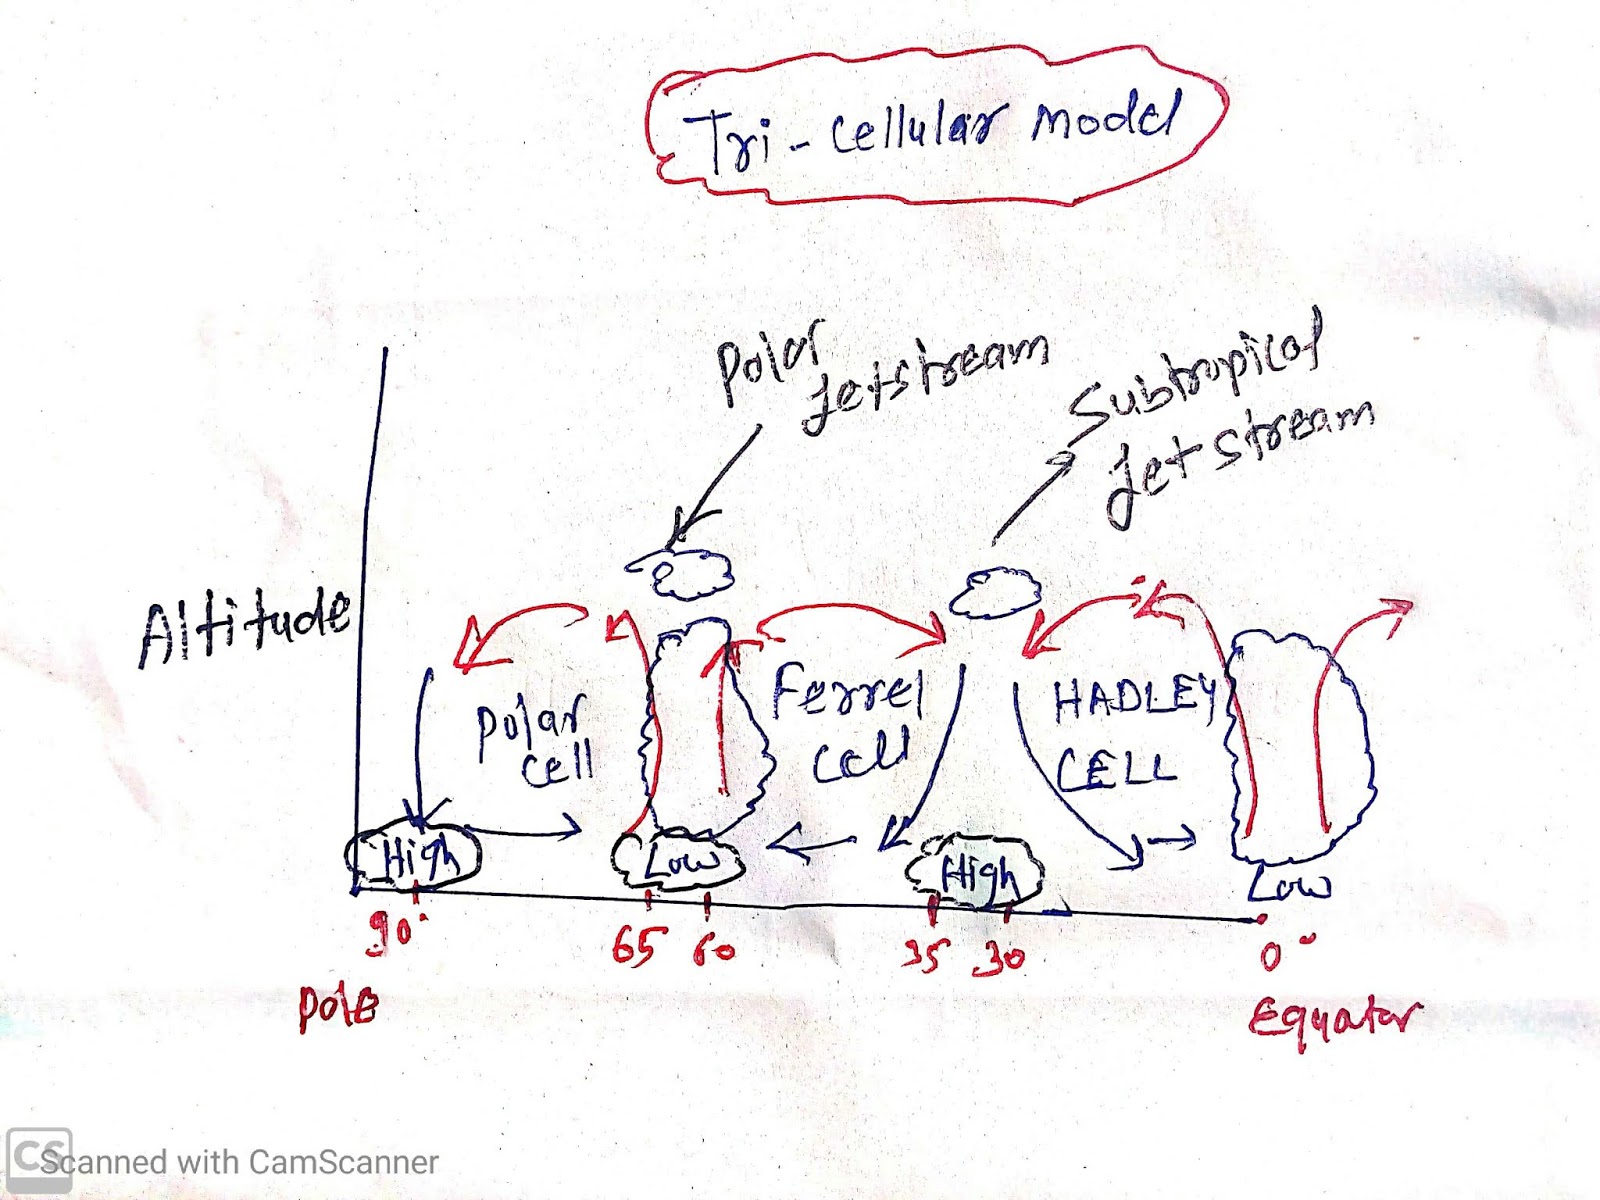 Tri-cellular Model
Polar
Jetstream
Subtropical
Jet stream
Altitude
Polar
cell
Ferrel
cell
HADLEY
CELL
High
Low
High
Low
90°
65
60
35
30
0°
Pole
Equator
CS
Scanned with CamScanner